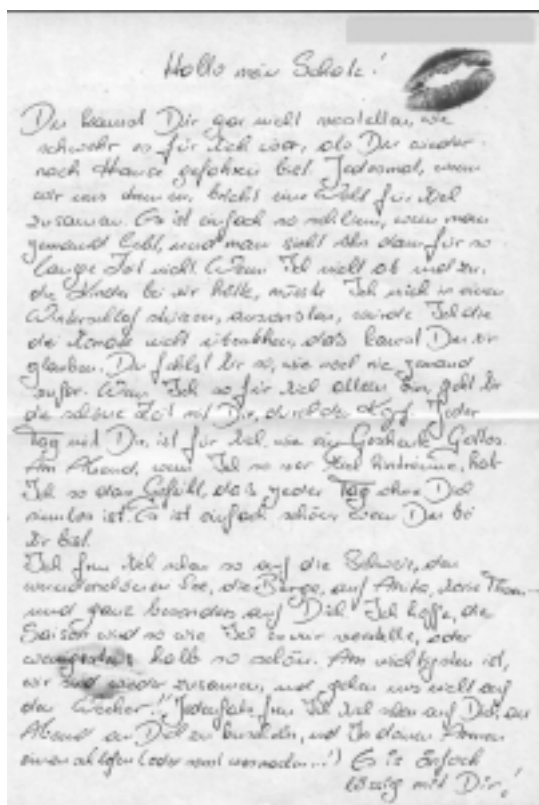 Hallo mein Schatz!
Du kannst Dir gar nicht vorstellen, wie
schwehr es für Mich war, als Du wieder
nach Hause gefahren bist. Jedesmal, wenn
wir uns trennen, bricht eine Welt für Mich
zusammen. Es ist einfach so schlimm, wenn man
jemand liebt, und man sieht ihn dann für so
lange Zeit nicht. Wenn Ich nicht ab und zu,
die Kinder bei mir hätte, müsste Ich mich in einen
Winterschlaf stürzen, ansonsten, würde Ich die
drei Monate nicht überleben, das kannst Du mir
glauben. Du fehlst Mir so, wie noch nie jemand
zuvor. Wenn Ich so für Mich allein bin, geht Mir
die schöne Zeit mit Dir, durch den Kopf. Jeder
Tag mit Dir, ist für Mich, wie ein Geschenk Gottes.
Am Abend, wenn Ich so vor Mich hinträume, hab
Ich so das Gefühl, das jeder Tag ohne Dich
sinnlos ist. Es ist einfach schöner wenn Du bei
Mir bist.
Ich freu Mich schon so auf die Schweiz, den
wunderschönen See, die Berge, auf Anita,
und ganz besonders auf Dich. Ich hoffe, die
Saison wird so wie Ich es mir vorstelle, oder
wenigstens halb so schön. Am wichtigsten ist,
wir sind wieder zusammen, und gehen uns nicht auf
den Wecker!! Jedenfalls freu Ich Mich schon auf Dich, am
Abend an Dich zu kuscheln, und In deinen Armen
einschlafen (oder sonst was machen...!) Es is änfach
lässig mit Dir!